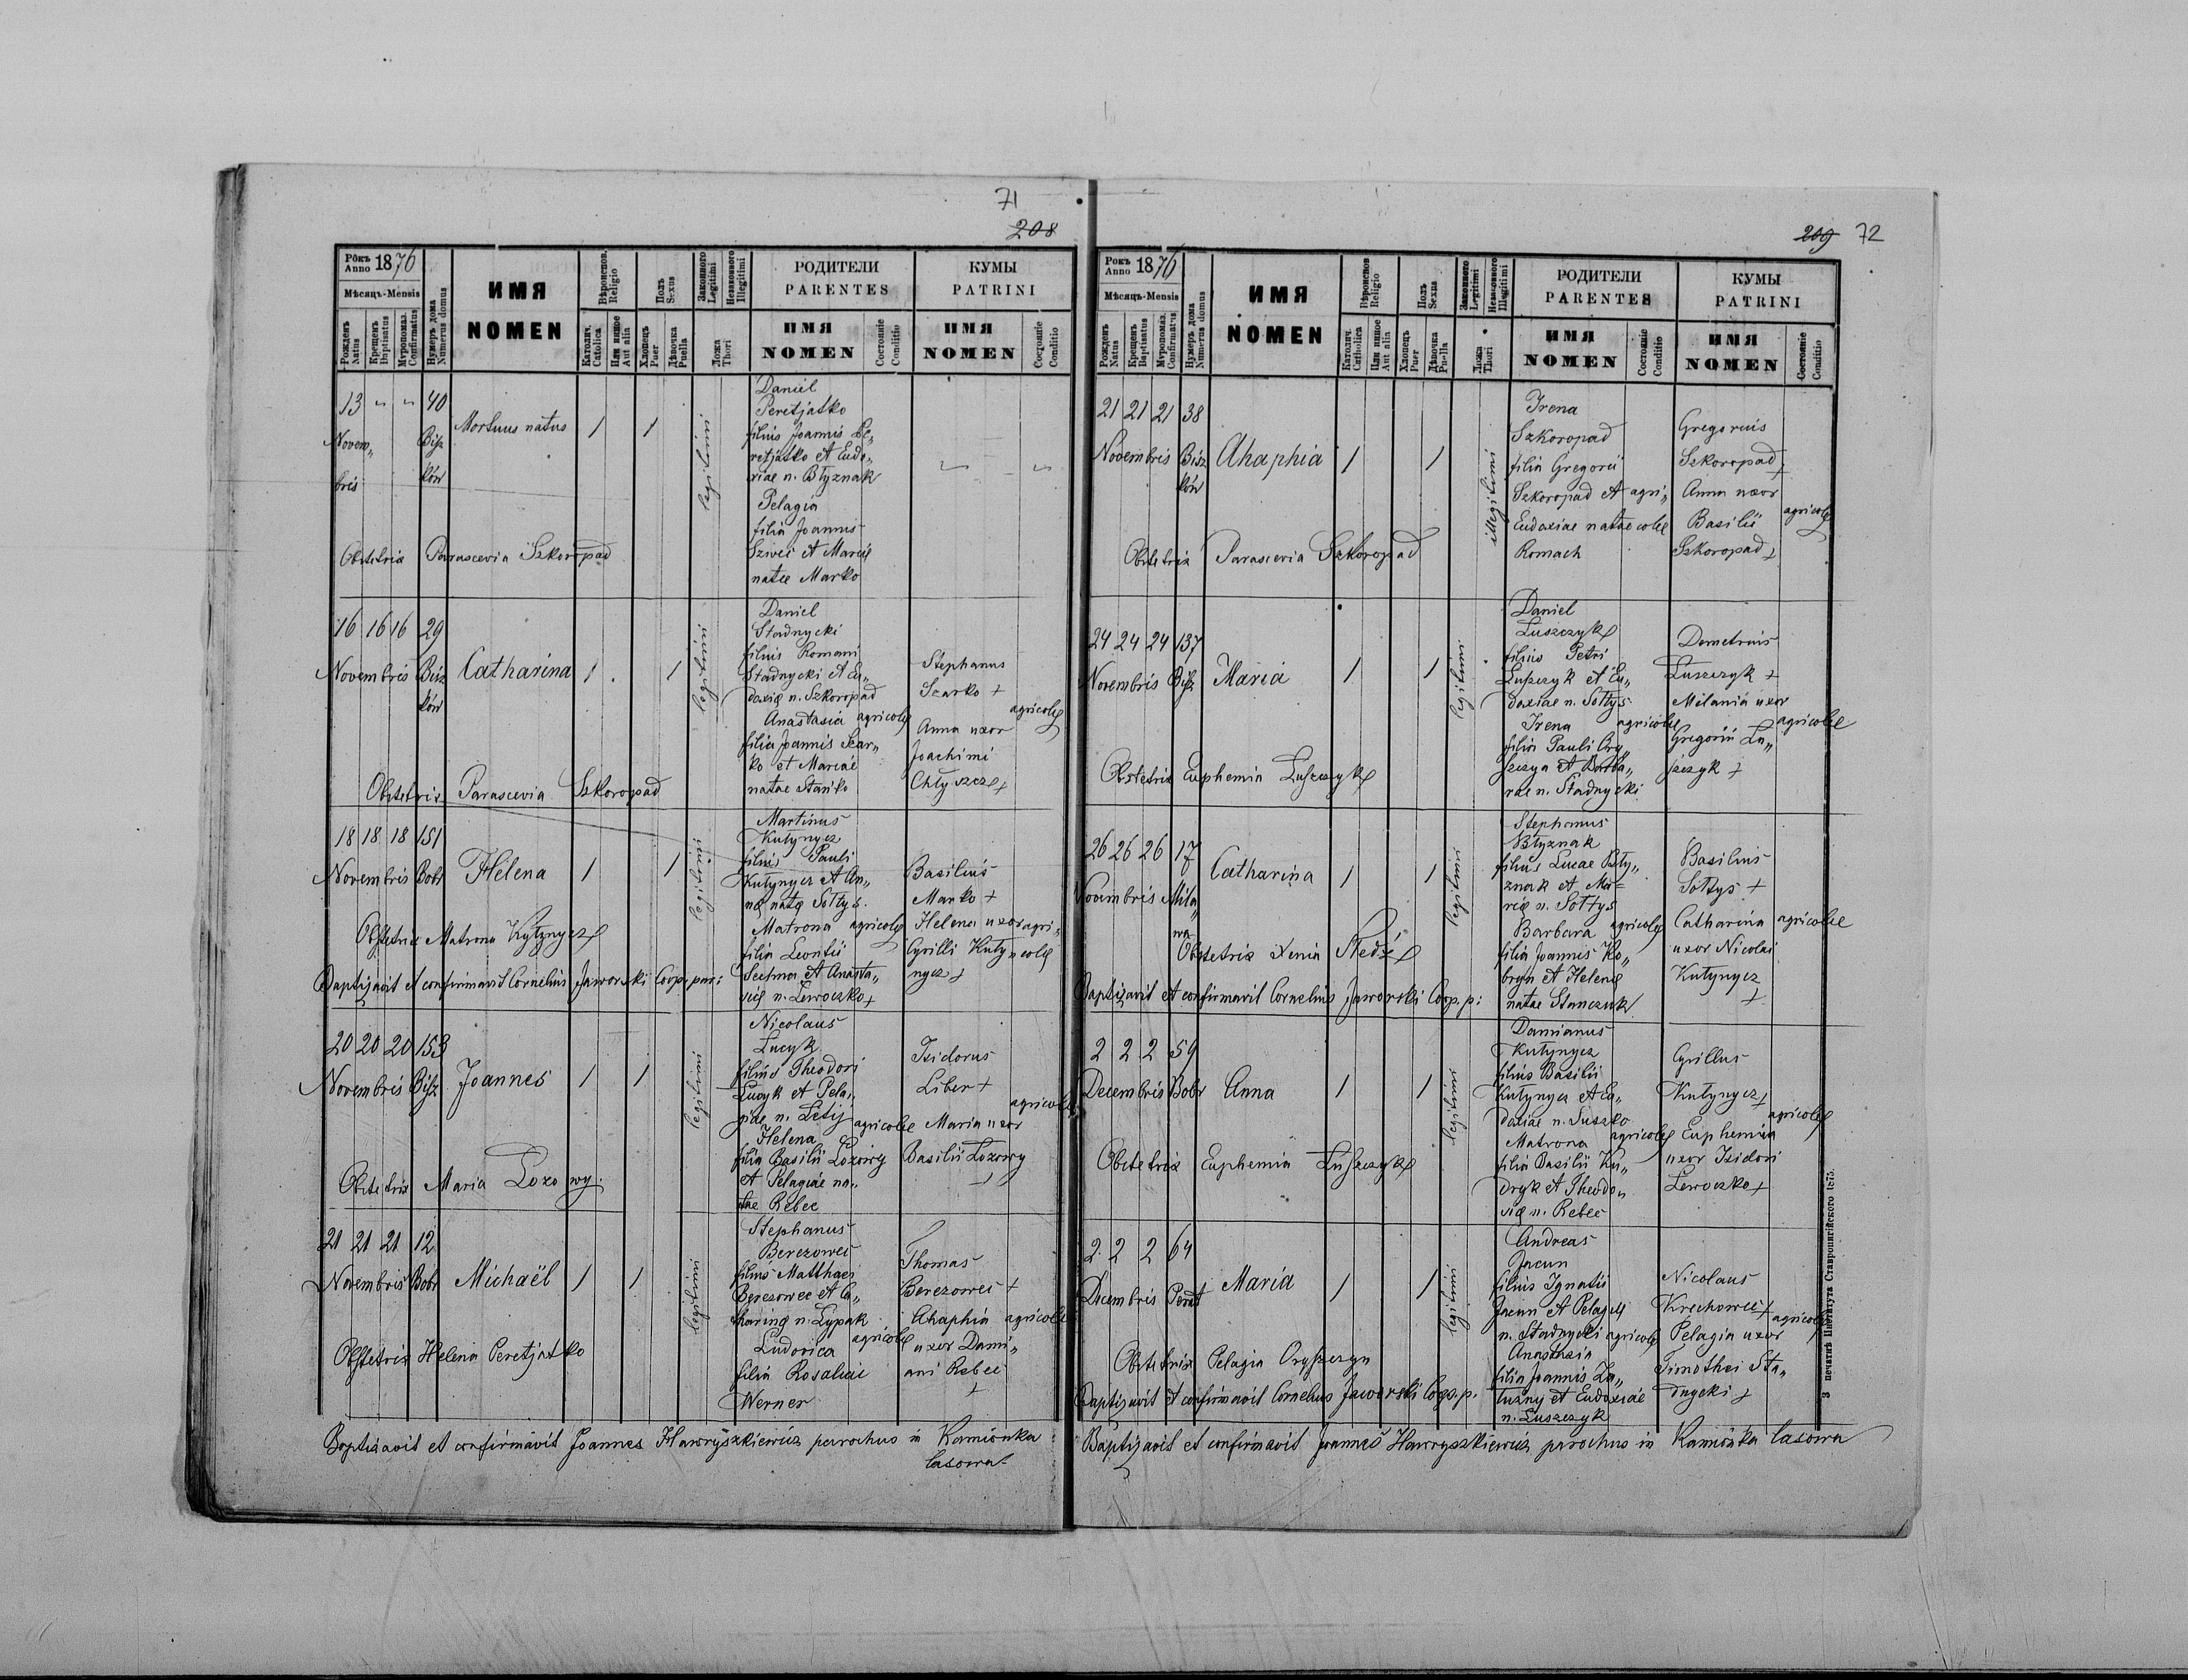 71
208
Рôкъ
Anno 1876
Мѣсяць-Mensis
Рожденъ
Natus
Крещенъ
Baptisatus
Мѵропомаз.
Confirmatus
Нумеръ дома
Numerus domus
ИМЯ
NOMEN
Вѣроиспов.
Religio
Католич.
Catolica
Или инное
Aut alia
Полъ
Sexus
Хлопецъ
Puer
Дѣвочка
Puella
Законного
Legitimi
Незаконного
Illegitimi
Ложа
Thori
РОДИТЕЛИ
PARENTES
ИМЯ
NOMEN
Состояніе
Conditio
КУМЫ
PATRINI
ИМЯ
NOMEN
Состояніе
Conditio
13 " " 40
Novem„
bris
Bisz
ków
Mortuus natus
1 1
legitimi
Daniel
Peretjatko
filius Joannis Pe„
retjatko et Eudo„
xiae n. Błyznak
Pelagia
filia Joannis
Sziwei et Mariae
natae Marko
Obstetrix Parascevia Szkoropad
16 16 16 29
Novembris Bisz
ków
Catharina
1 1
legitimi
Daniel
Stadnycki
filius Romani
Stadnycki et Eu„
doxiae n. Szkoropad
Anastasia agricolae
filia Joannis Scar„
ko et Mariae
natae Stańko
Stephanus
Scarko +
Anna uxor
Joachimi
Chłyszcz +
agricolae
Obstetrix Parascevia Szkoropad
18 18 18 151
Novembris Bobr
Helena
1 1
legitimi
Martinus
Kutynycz
filius Pauli
Kutynycz et An„
nae natae Sołtys
Matrona agricolae
filia Leontii
et Anasta„
siae n. Lewoczko +
Basilius
Marko +
Helena uxor agri„
Cyrilli Kuty„ colae
nycz +
Obstetrix Matrona Kytynycz
Baptizavit et confirmavit Cornelius Jaworski Coop. par:
20 20 20 153
Novembris Bisz
Joannes
1 1
legitimi
Nicolaus
Lucyk
filius Theodori
Lucyk et Pela„
giae n. Letij
agricolae
Helena
filia Basilii Lozowy
et Pelagiae na„
tae Rebec
Isidorus
Liber +
Maria uxor
Basilii Lozowy
+
agricolae
Obstetrix Maria Lozowy.
21 21 21 12
Novembris Bobr
Michaël
1 1
legitimi
Stephanus
Berezowec
filius Matthaei
Berezowec et Ca„
tharinae n. Lypak
Ludovica agricolae
filia Rosaliae
Werner
Thomas
Berezowec +
Ahaphia agricolae
uxor Dami„
ani Rebec
+
Obstetrix Helena Peretjatko
Baptizavit et confirmavit Joannes Hawryszkiewicz parochus in Kamionka
lasowa
209 72
Рокъ
Anno 1876
Мѣсяць-Mensis
Рожденъ
Natus
Крещенъ
Baptisatus
Мѵропомаз.
Confirmatus
Нумеръ дома
Numerus domus
ИМЯ
NOMEN
Вѣроиспов
Religio
Католич.
Catholica
Или инное
Aut alia
Полъ
Sexus
Хлопецъ
Puer
Дѣвочка
Puella
Законного
Legitimi
Незаконного
Illegitimi
Ложа
Thori
РОДИТЕЛИ
PARENTES
ИМЯ
NOMEN
Состояніе
Conditio
КУМЫ
PATRINI
ИМЯ
NOMEN
Состояніе
Conditio
21 21 21 38
Novembris Bisz
ków
Ahaphia
1 1
illegitimi
Irena
Szkoropad
filia Gregorii
Szkoropad et agri„
Eudoxiae natae colae
Romach
Gregorius
Szkoropad +
Anna uxor
Basilii
Szkoropad +
agricolae
Obstetrix Parascevia Szkoropad
24 24 24 137
Novembris Bisz
Maria
1 1
legitimi
Daniel
Łuszczyk
filius Petri
Łuszczyk et Eu„
doxiae n. Sołtys
Irena agricolae
filia Pauli Ory„
szczyn et Barba„
rae n. Stadnycki
Demetrius
Łuszczyk +
Melania uxor
Gregorii Łu„
szczyk +
agricolae
Obstetrix Euphemia Łuszczyk
26 26 26 17
Novembris Mila„
wa
Catharina
1 1
legitimi
Stephanus
Błyznak
filius Lucae Bły„
znak et Ma=
riae n. Sołtys
Barbara agricolae
filia Joannis Ko„
bryn et Helenae
natae Stanczuk
Basilius
Sołtys +
Catharina agricolae
uxor Nicolai
Kutynycz
+
Obstetrix Xenia Śledź
Baptizavit et confirmavit Cornelius Jaworski Coop. p:
2 2 2 59
Decembris Bobr
Anna
1 1
legitimi
Damianus
Kutynycz
filius Basilii
Kutynycz et Eu„
doxiae n. Suszko
Matrona agricolae
filia Basilii Ku„
dryk et Theodo„
siae n. Rebec
Cyrillus
Kutynycz +
agricolae
Euphemia
uxor Isidori
Lewoczko +
Obstetrix Euphemia Łuszczyk
2 2 2 64
Decembris Peret
Maria
1 1
legitimi
Andreas
Jacun
filius Ignatii
Jacun et Pelagiae
n. Stadnycki agricolae
Anastasia
filia Joannis Za„
łużny et Eudoxiae
n. Łuszczyk
Nicolaus
Krechowec +
agricolae
Pelagia uxor
Timothei Sta„
dnycki +
Obstetrix Pelagia Oryszczyn
Baptizavit et confirmavit Cornelius Jaworski Coop. p.
Baptizavit et confirmavit Joannes Hawryszkiewicz parochus in Kamionka lasowa
З печатнѣ Института Ставропигійского 1875.